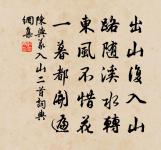 出山復入山
路隨溪水轉
東風不惜花
一暮都開遍
陳與義入山二首詞典
網集